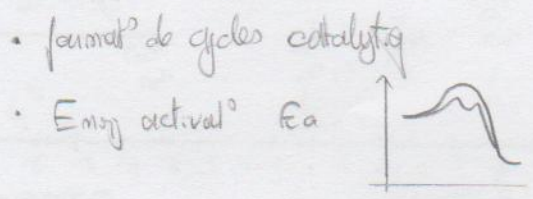 • format° de cycles catalytiq
• Energ activat° Ea